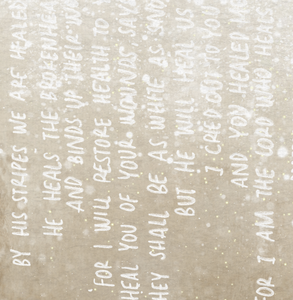 BY HIS STRIPES WE ARE HEALED
HE HEALS THE BROKENHEA
AND BINDS UP THEIR WO
FOR I WILL RESTORE HEALTH TO
HEAL YOU OF YOUR WOUNDS, SAY
HEY SHALL BE AS WHITE AS SNO
BUT HE WILL HEAL US
I CRIED OUT TO YOU
AND YOU HEALED M
FOR I AM THE LORD WHO HEALS